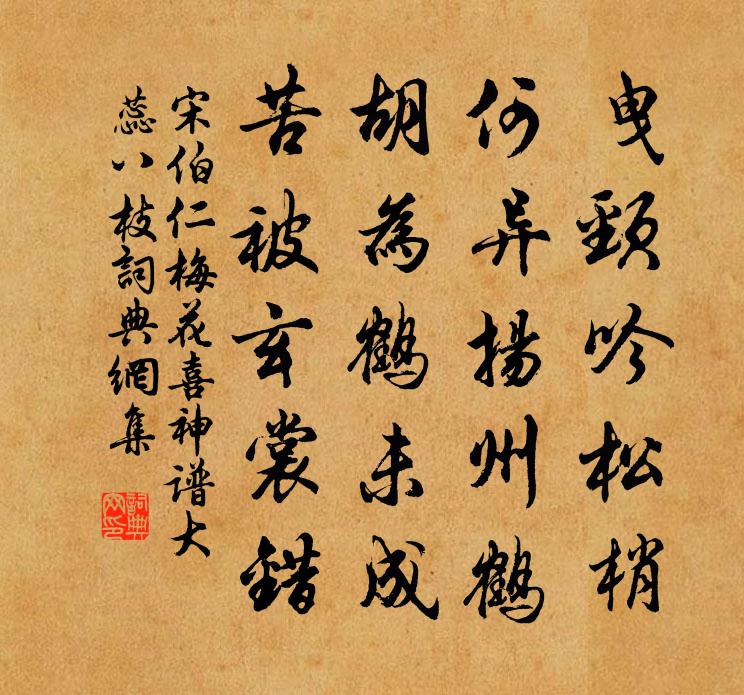 曳頸吟松梢
何异揚州鶴
胡為鶴未成
苦被玄裳錯
宋伯仁梅花喜神谱大
蕊八枝詞典網集
詞典網印